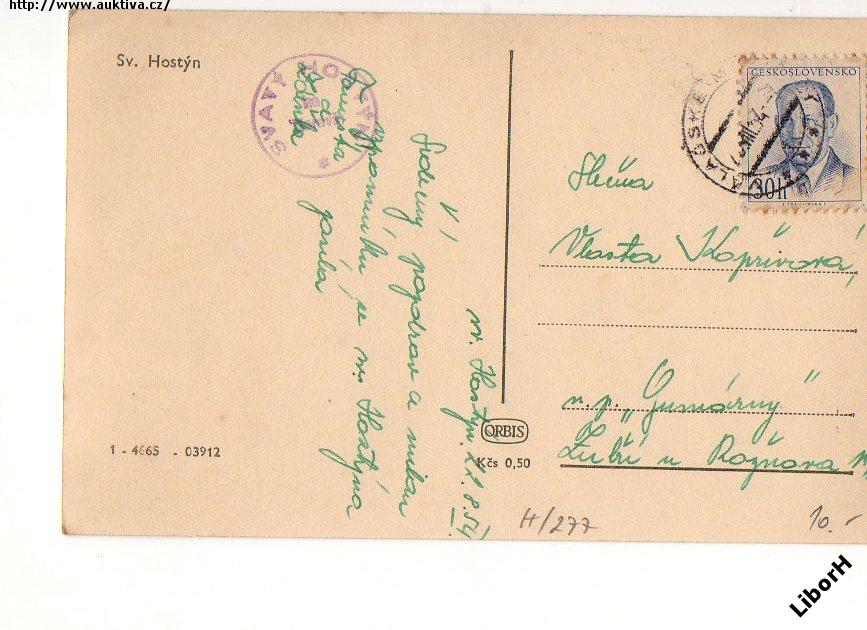 http://www.auktiva.cz/
Sv. Hostýn
SVATÝ HOSTÝN
ČESKOSLOVENSKO
30h
sv. Hostýn. 22.8.54.
Srdečný pozdrav a milou
vzpomínku ze sv. Hostýna
Jarka
Zdenka
Slečna
Vlasta Kopřivová,
n.p. „Gumárny"
Zubří u Rožnova
ORBIS
Kčs 0,50
1 - 4665 - 03912
H/277
10.-
LiborH